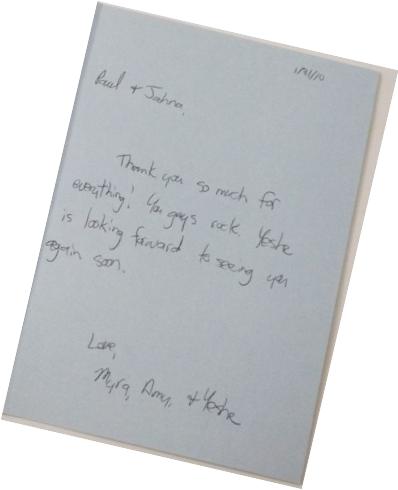 Paul & Jahna,
Thank you so much for
everything! You guys rock. Yoshe
is looking forward to seeing you
again soon.
Love,
Myra, Amy, & Yoshe